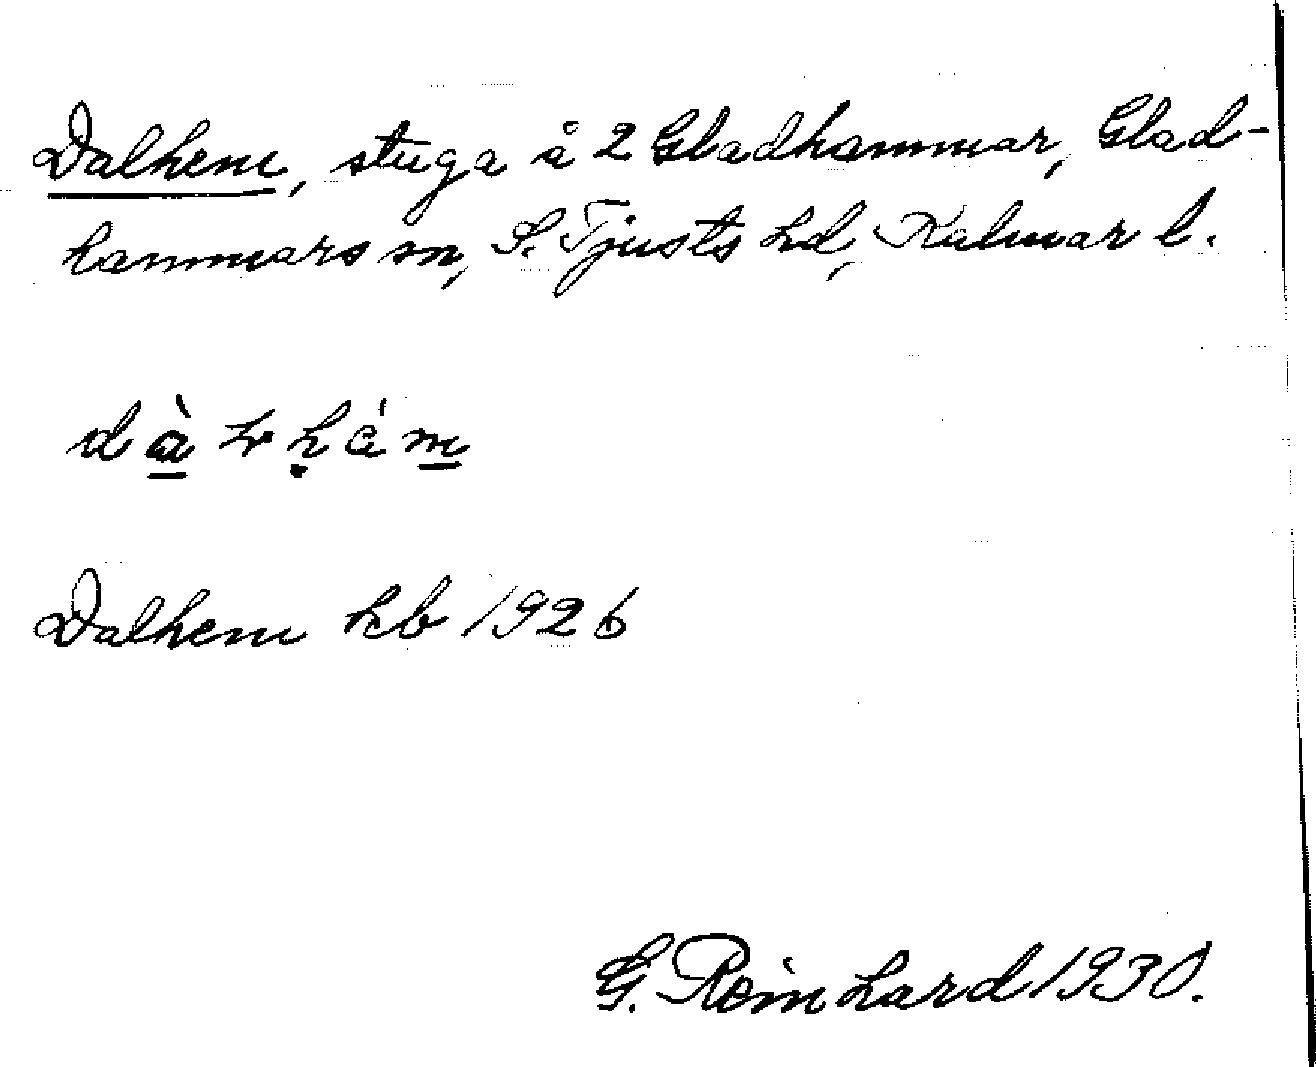 Dalhem, stuga å 2 Gladhammar, Glad-
hammars sn, S. Tjusts hd, Kalmar l.
Dalhem kb 1926
G. Reinhard 1930.